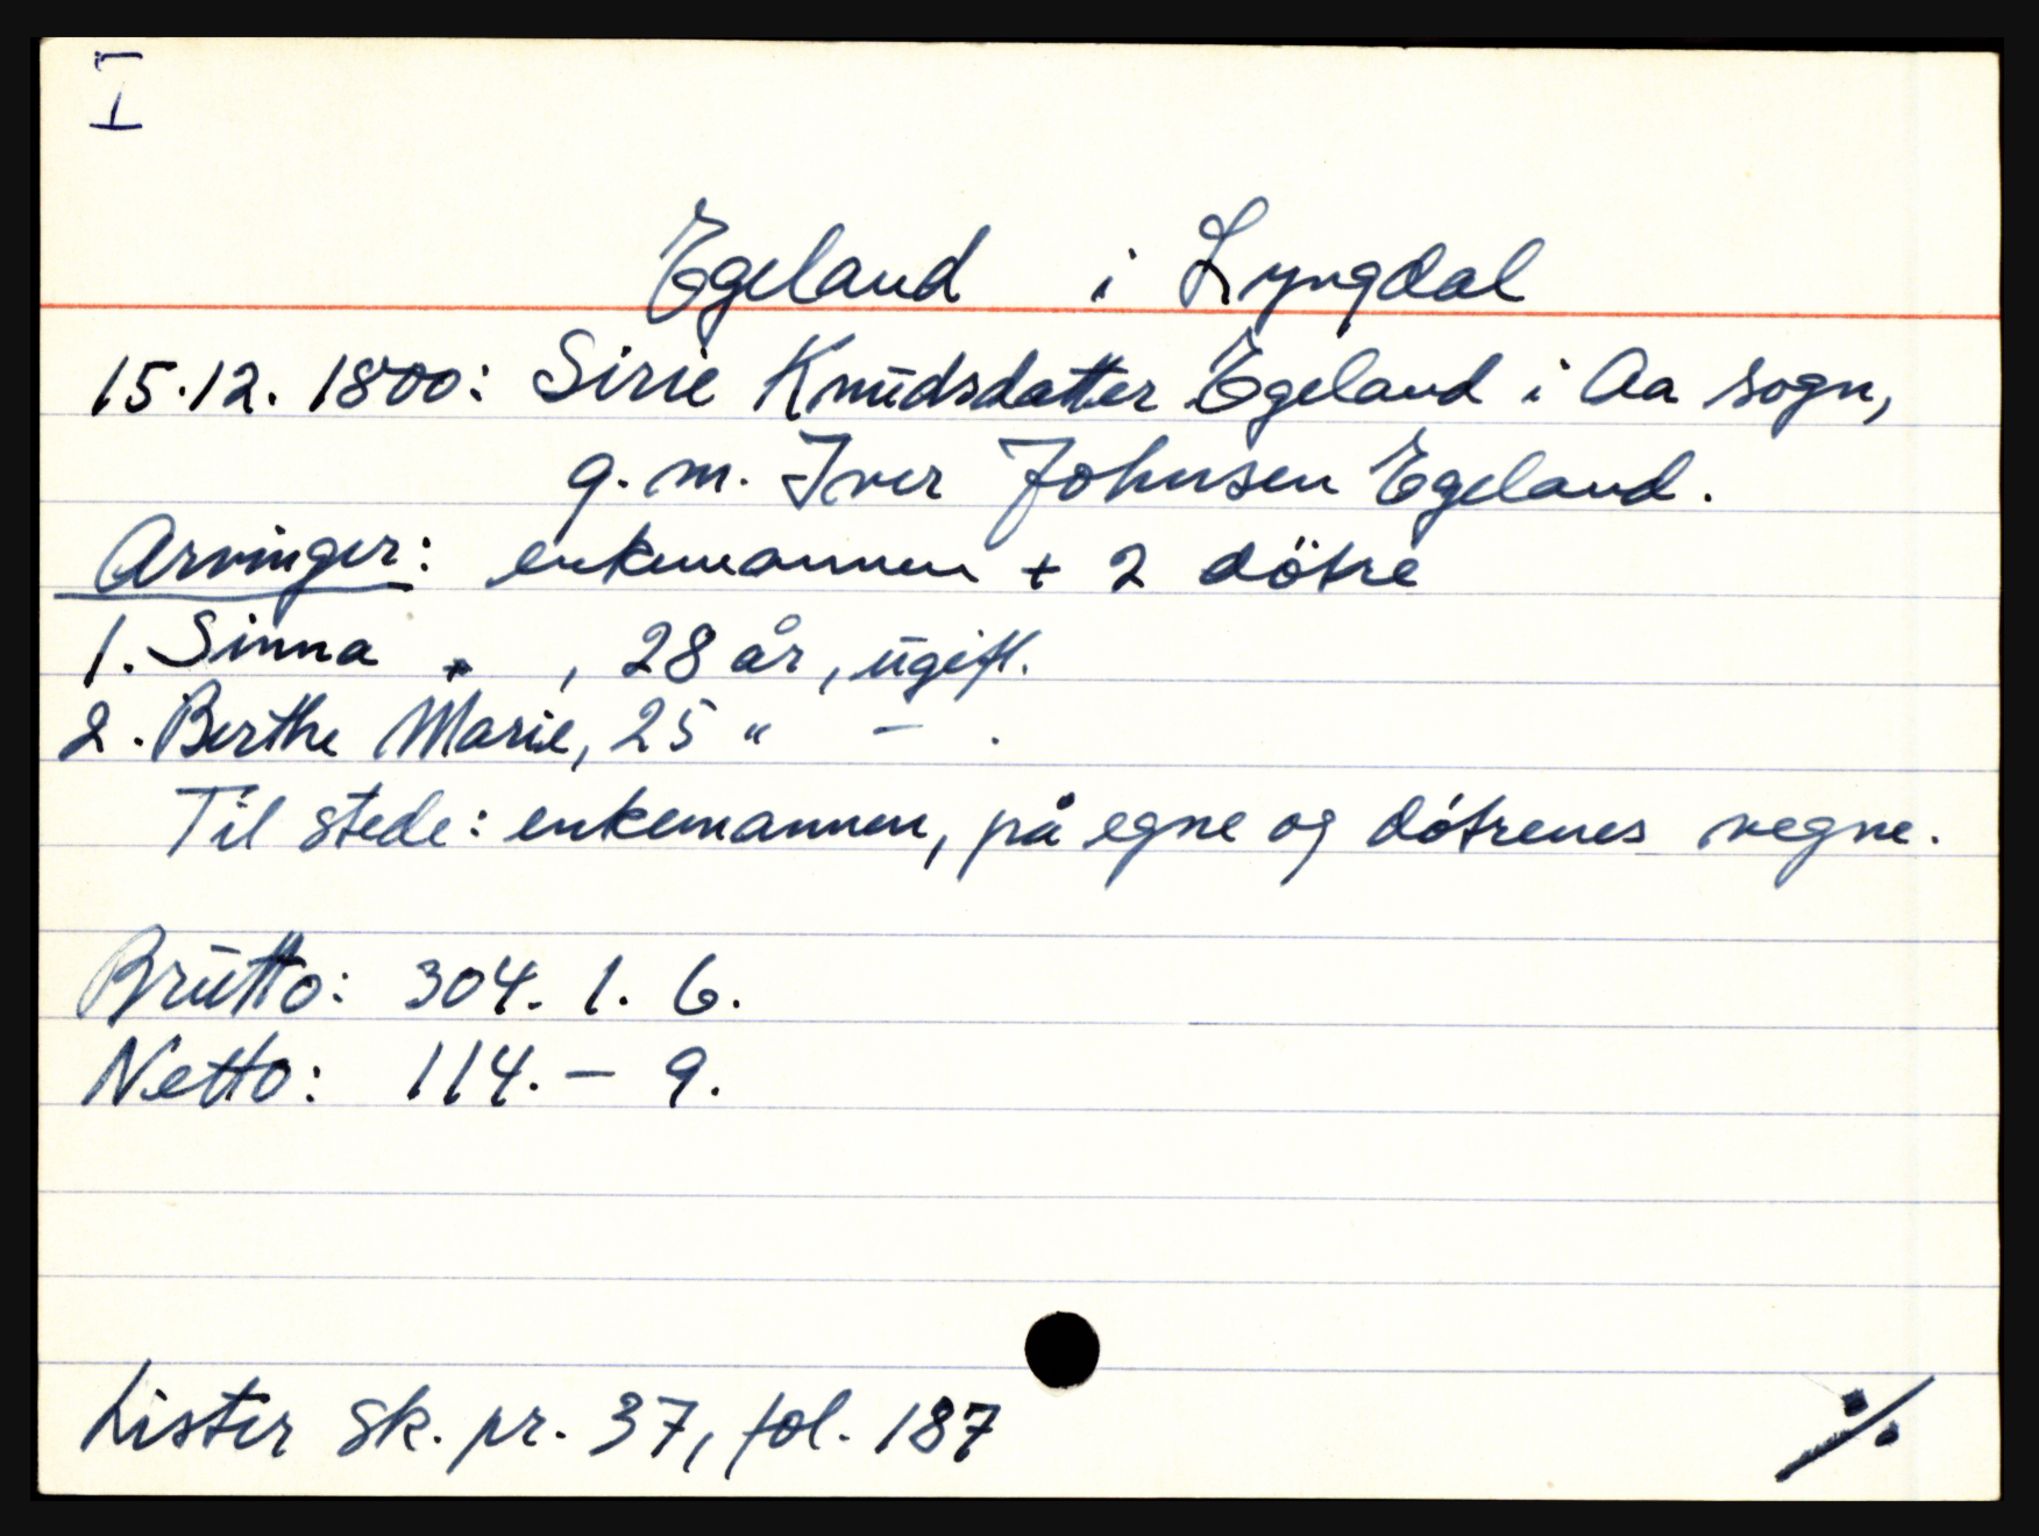 Egeland i Lyngdal
15.12. 1800: Sirie Knudsdatter Egeland i Aa sogn,
g. m. Iver Johnsen Egeland.
Arvinger: enkemannen + 2 døtre
1. Sinna " , 28 år, ugift.
2. Berthe Marie, 25 " — .
Til stede: enkemannen, på egne og døtrenes vegne.
Brutto: 304. 1. 6.
Netto: 114. — 9.
Lister sk. pr. 37, fol. 187